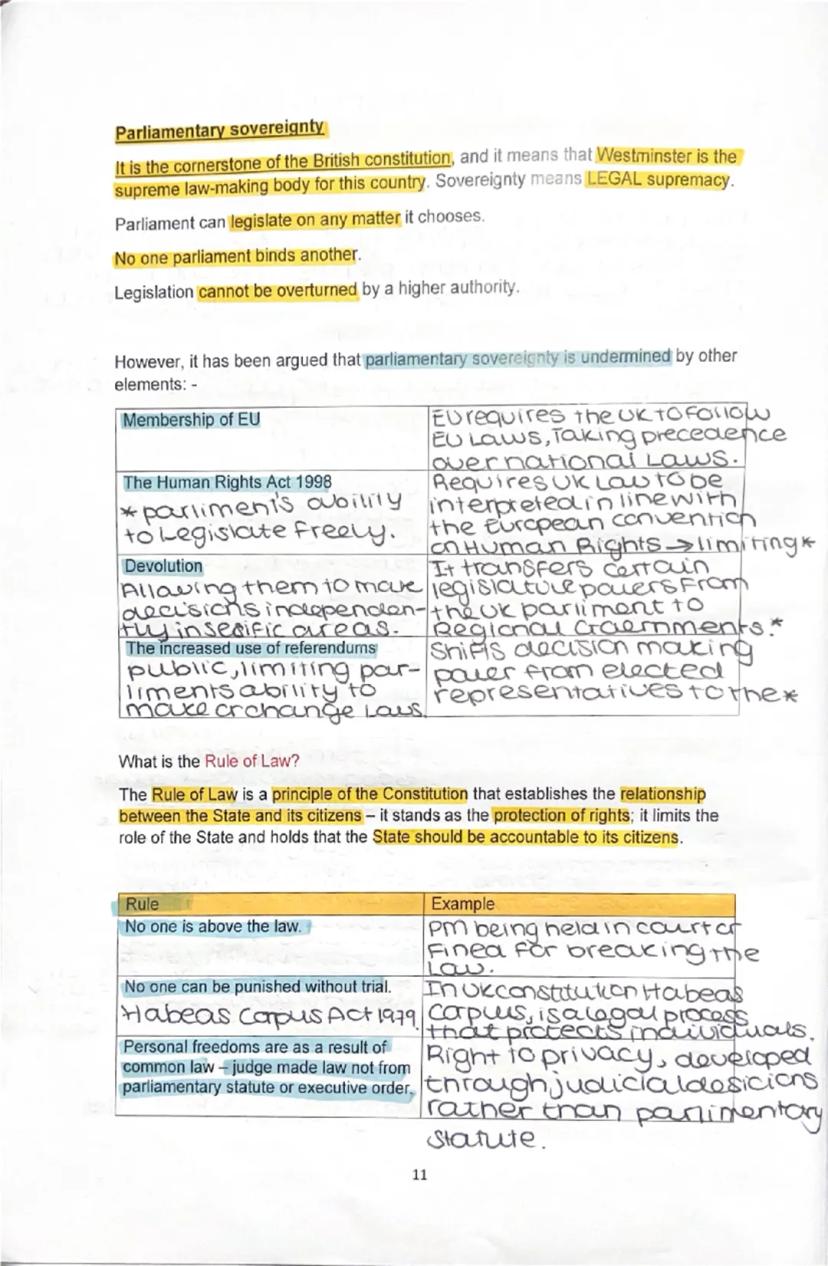 Parliamentary sovereignty
It is the cornerstone of the British constitution, and it means that Westminster is the
supreme law-making body for this country. Sovereignty means LEGAL supremacy.
Parliament can legislate on any matter it chooses.
No one parliament binds another.
Legislation cannot be overturned by a higher authority.
However, it has been argued that parliamentary sovereignty is undermined by other
elements: -
Membership of EU
EU requires the UK to follow
EU Laws, Taking precedence
over national Laws.
The Human Rights Act 1998
* parliment's ability
to Legislate freely.
Requires UK Law to be
interpreted in line with
the European convention
on Human Rights → limiting *
Devolution
Allowing them to make
decisions independen-
tly in secific areas.
It transfers certain
legislature powers from
the UK parliment to
Regional Goernments.*
The increased use of referendums
public, limiting par-
liments ability to
make or change Laws.
Shifts decision making
power from elected
representatives to the *
What is the Rule of Law?
The Rule of Law is a principle of the Constitution that establishes the relationship
between the State and its citizens – it stands as the protection of rights; it limits the
role of the State and holds that the State should be accountable to its citizens.
Rule
Example
No one is above the law.
PM being held in court or
Fined for breaking the
Law.
No one can be punished without trial.
Habeas Corpus Act 1979.
In UK constitution Habeas
Corpus, is a legal process
that protects individuals.
Personal freedoms are as a result of
common law – judge made law not from
parliamentary statute or executive order.
Right to privacy, developed
through judicial desicions
rather than parlimentary
statute.
11